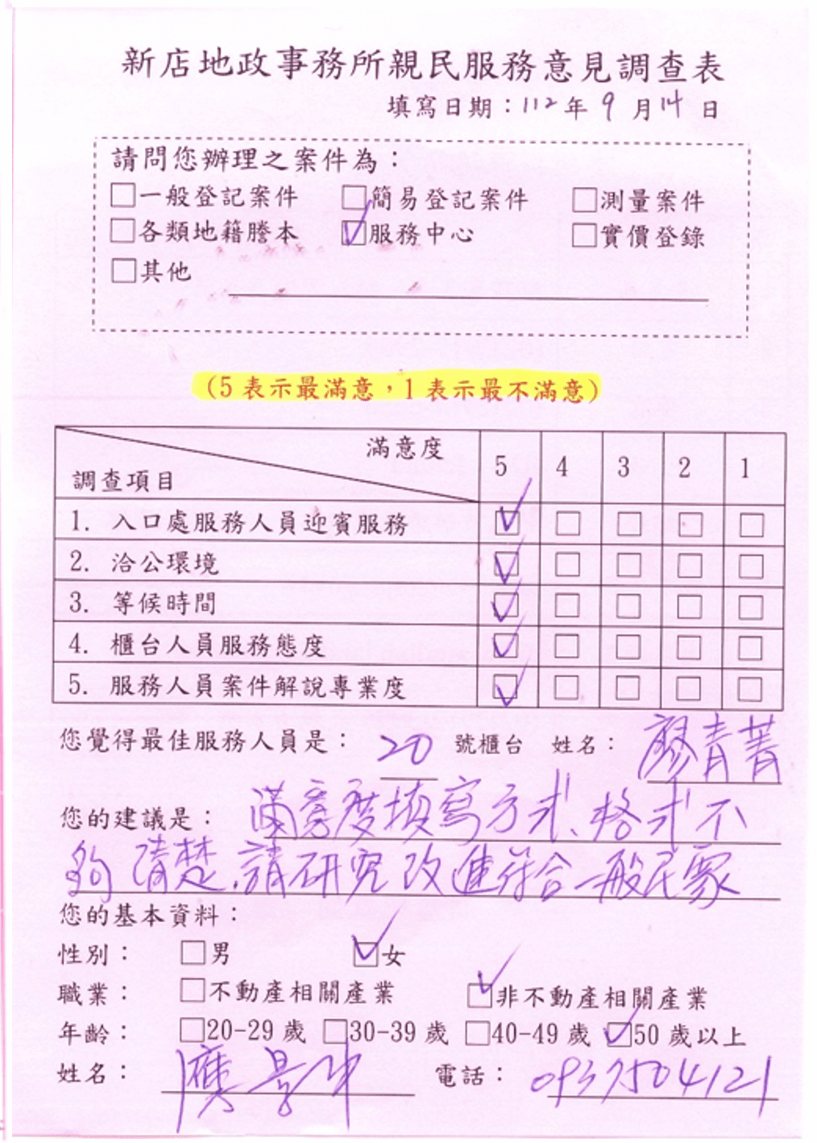 新店地政事務所親民服務意見調查表
填寫日期：112年9月14日
請問您辦理之案件為：
□一般登記案件 □簡易登記案件 □測量案件
□各類地籍謄本 ☑服務中心 □實價登錄
□其他
(5表示最滿意，1表示最不滿意)
滿意度 5 4 3 2 1
調查項目
1. 入口處服務人員迎賓服務 ☑ □ □ □ □
2. 洽公環境 ☑ □ □ □ □
3. 等候時間 ☑ □ □ □ □
4. 櫃台人員服務態度 ☑ □ □ □ □
5. 服務人員案件解說專業度 ☑ □ □ □ □
您覺得最佳服務人員是：20 號櫃台 姓名：廖青菁
您的建議是：滿意度填寫方式、格式不
夠清楚，請研究改進符合一般民眾
您的基本資料：
性別： □男 ☑女
職業： □不動產相關產業 ☑非不動產相關產業
年齡： □20-29歲 □30-39歲 □40-49歲 ☑50歲以上
姓名： 電話：0937504121